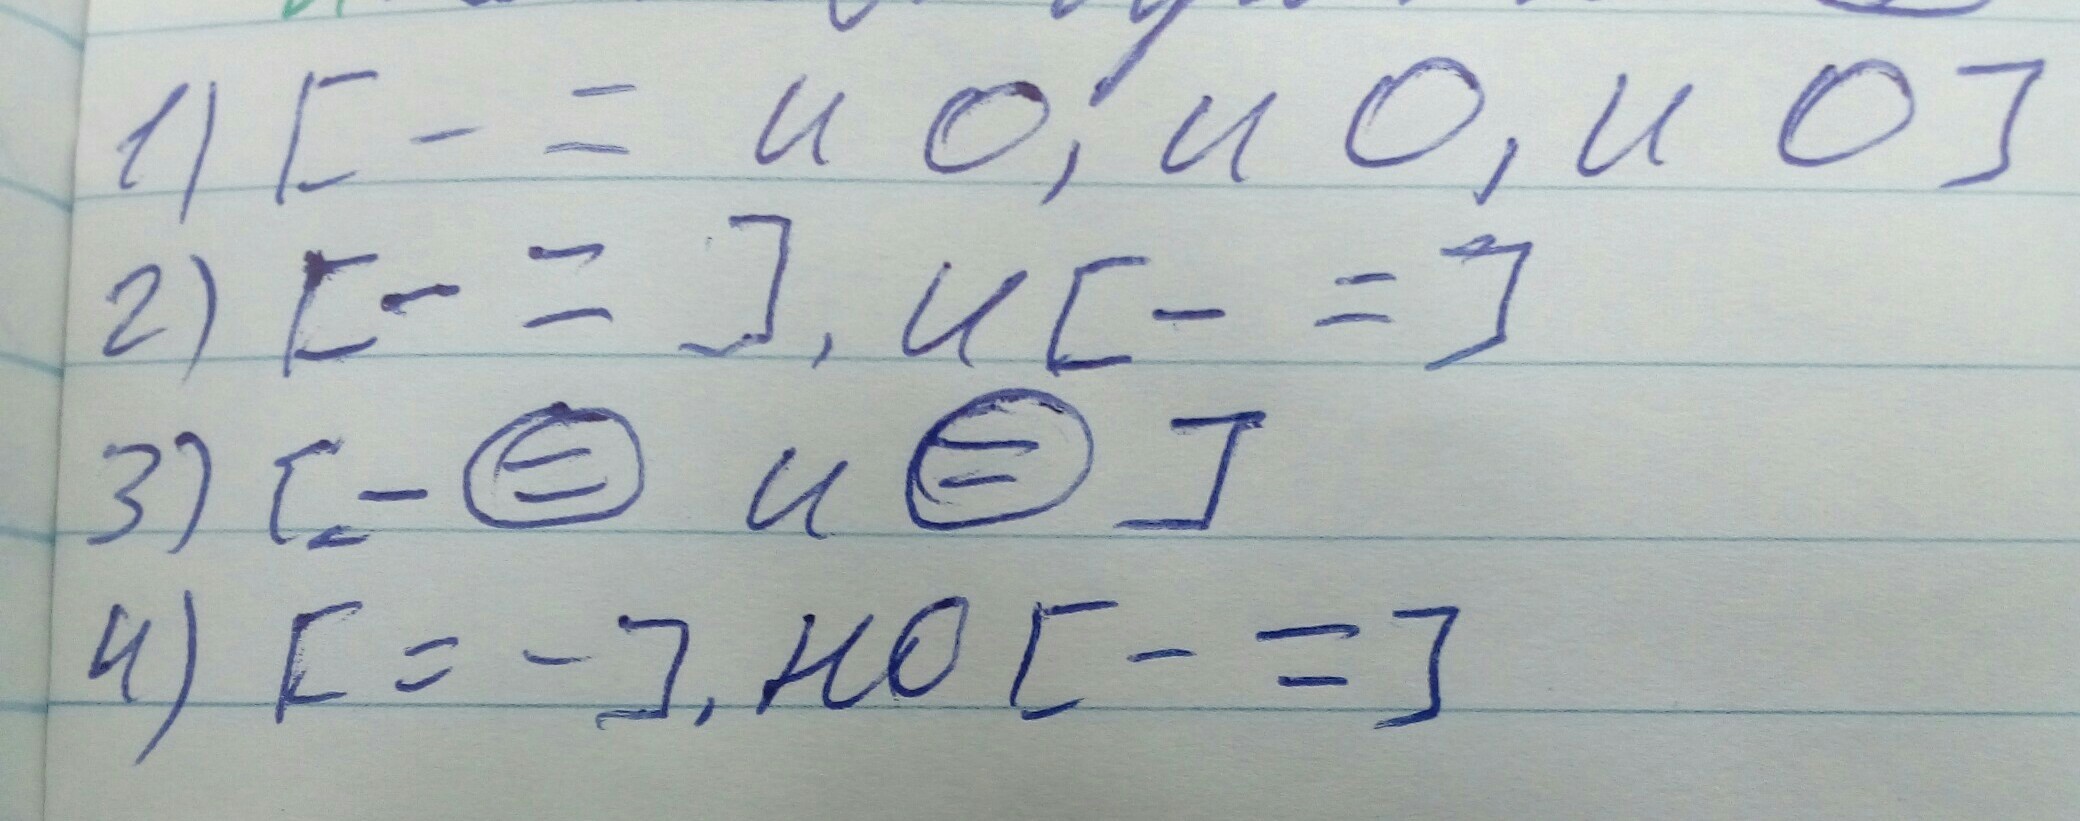 1) [ - = и О, и О, и О ]
2) [ - = ], и [ - = ]
3) [ - = и = ]
4) [ = - ], но [ - = ]